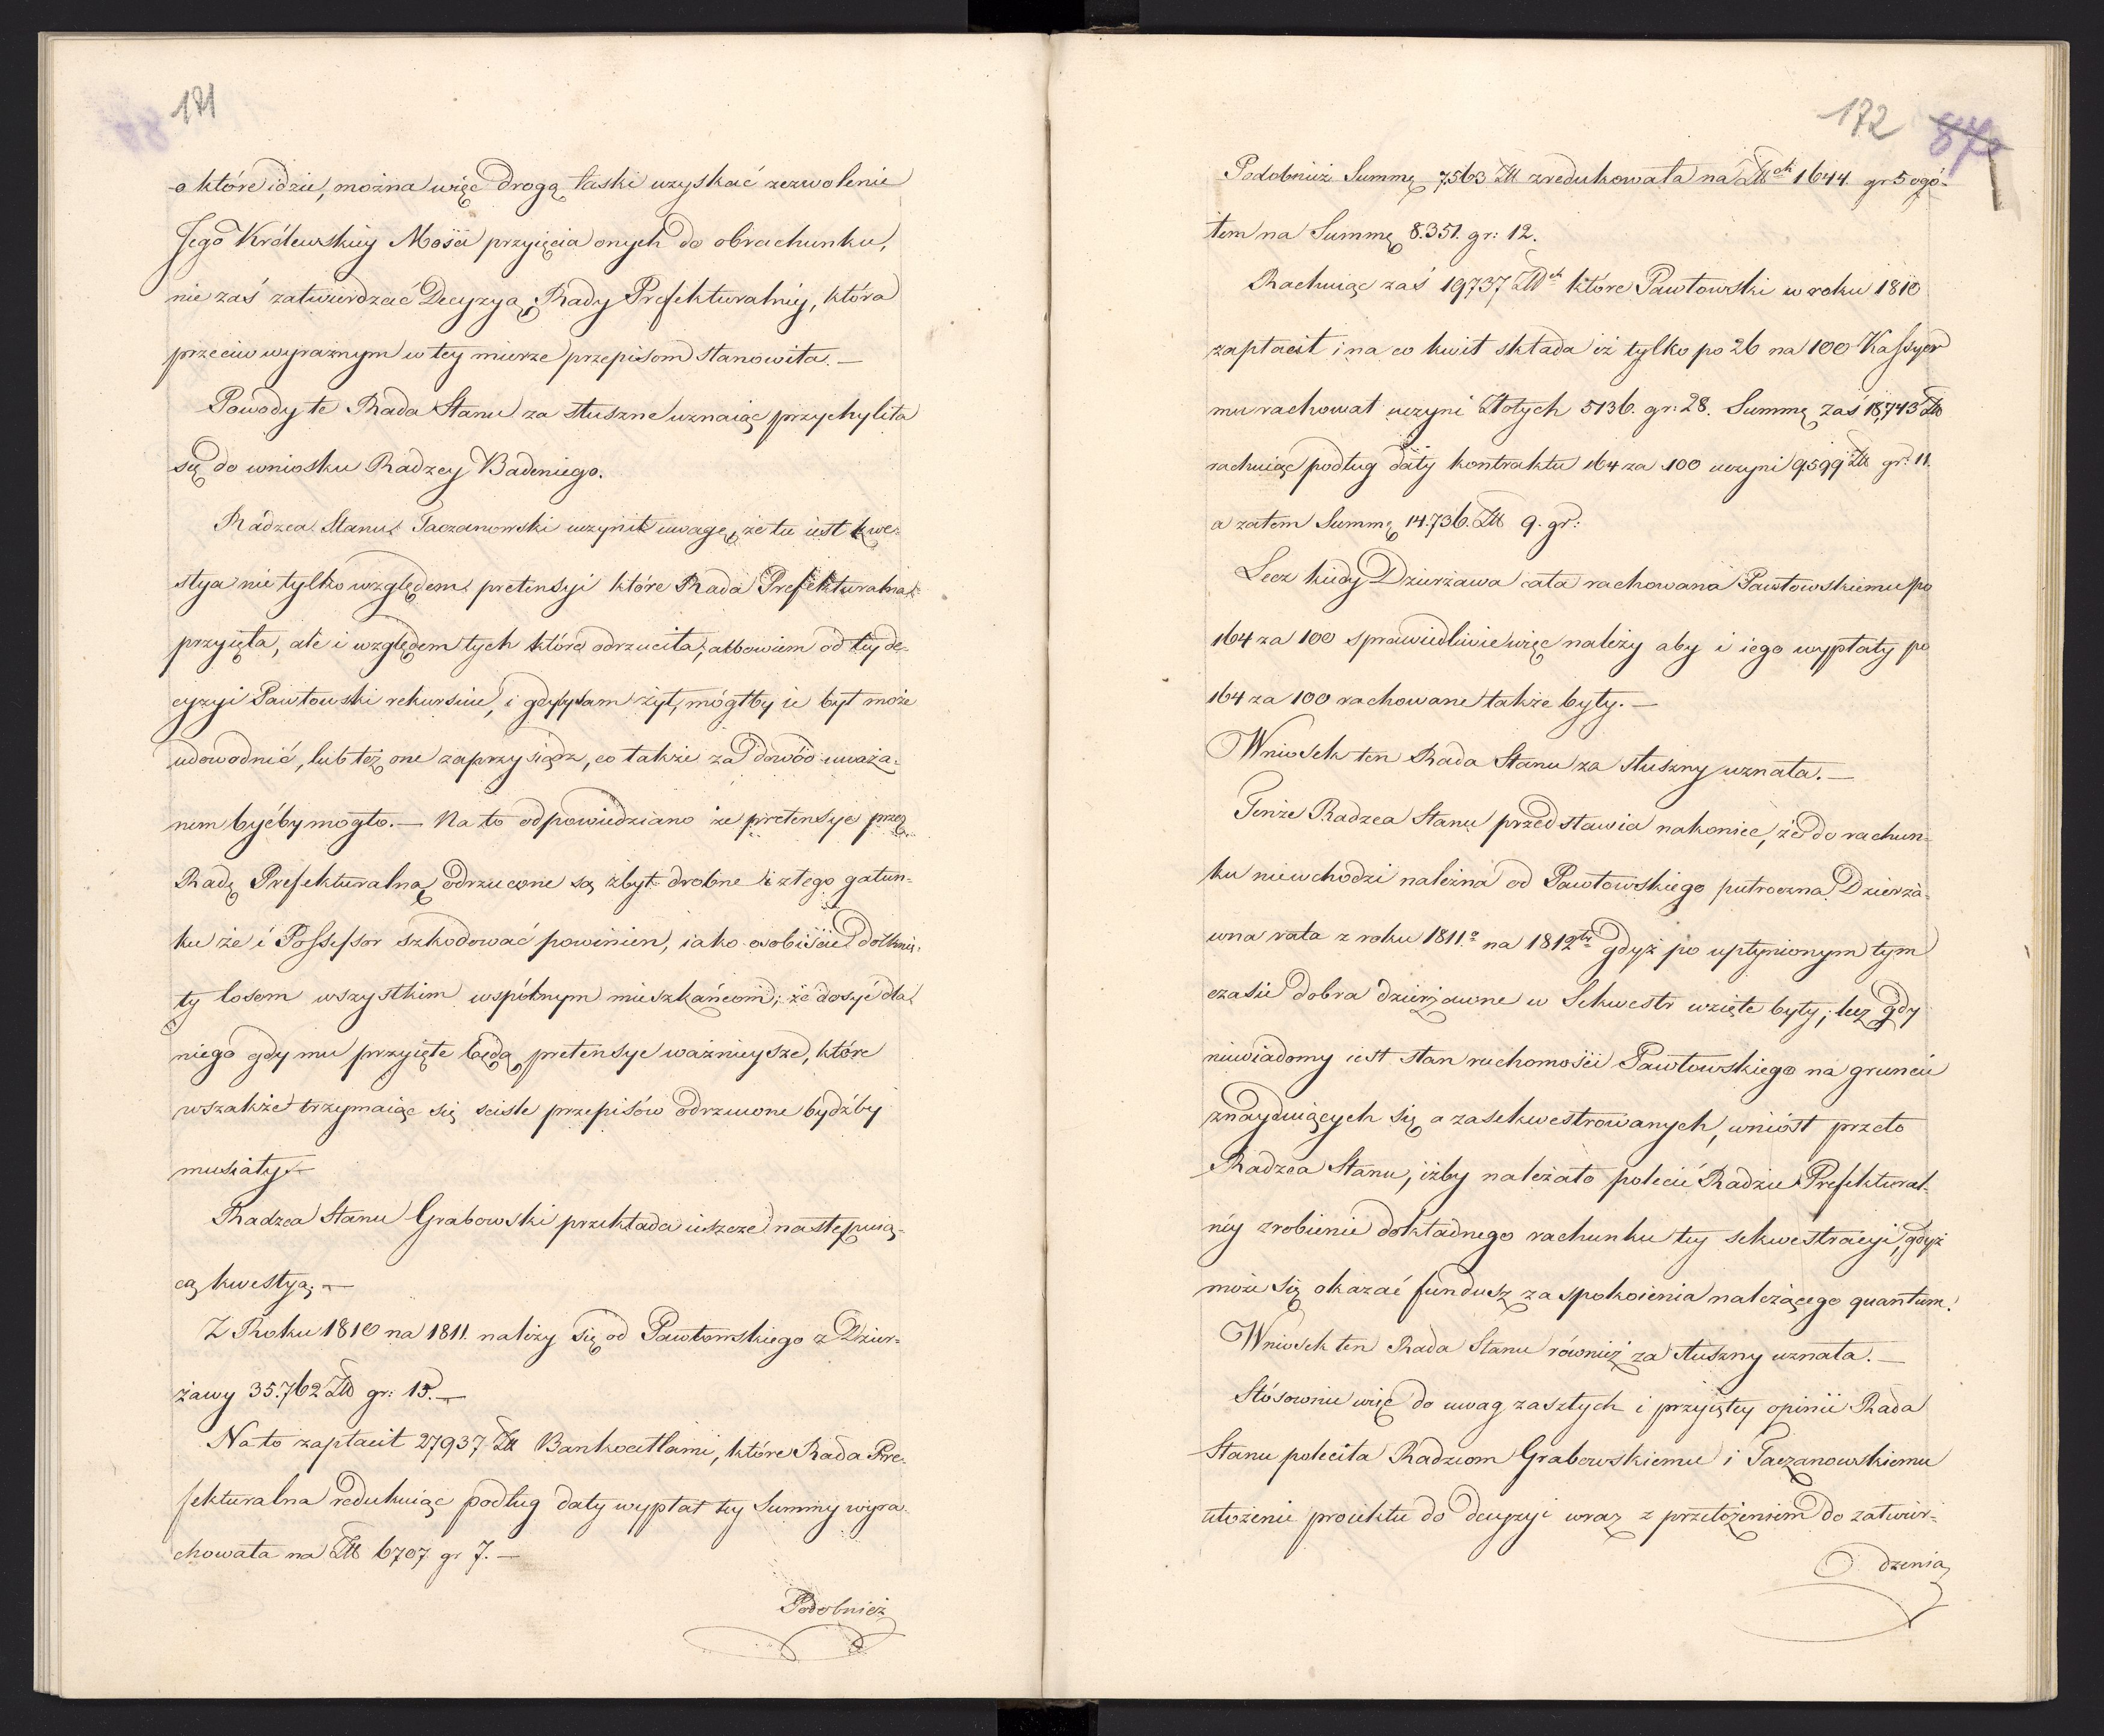 171
o które idzie, można więc drogą łaski uzyskać zezwolenie
Jego Królewskiey Mości przyięcia onych do obrachunku,
nie zaś zatwierdzać Decyzyą Rady Prefekturalney, która
przeciw wyraźnym w tey mierze przepisom stanowiła. —
Powody te Rada Stanu za słuszne uznaiąc przychyliła
się do wniosku Radzcy Badeniego.
Radzca Stanu Taczanowski uczynił uwagę, że tu iest kwe-
stya nie tylko względem pretensyi które Rada Prefekturalna
przyięła, ale i względem tych które odrzuciła; albowiem od tey de-
cyzyi Pawłowski rekursuie, i gdyby sam żył, mógłby ie był może
udowodnić, lub też one zaprzysiądz, co także za dowód uważa-
nem byćby mogło. — Na to odpowiedziano że pretensye przez
Radę Prefekturalną odrzucone są zbyt drobne i z tego gatun-
ku że i Possessor szkodować powinien, iako osobiście dotknię-
ty losem wszystkim wspólnym mieszkańcom; że dosyć dla
niego gdy mu przyięte będą pretensye ważnieysze, które
wszakże trzymaiąc się scisle przepisów odrzucone bydźby
musiały. —
Radzca Stanu Grabowski przekłada ieszcze następuią-
cą kwestyą; —
Z Roku 1810 na 1811. należy się od Pawłowskiego z Dzier-
żawy 35.762 Złł gr: 15. —
Na to zapłacił 27937 Złł Bankocetlami, które Rada Pre-
fekturalna redukuiąc podług daty wypłat tey Summy wyra-
chowała na Złł 6707 gr 7. —
Podobnież
172 87
Podobnież Summę 7563 Złł zredukowała na Złłch 1644. gr 5 ogó-
łem na Summę 8.351. gr: 12.
Rachuiąc zaś 19737 Złłch które Pawłowski w roku 1810
zapłacił i na co kwit składa iż tylko po 26 na 100 Kassyer
mu rachował uczyni Złotych 5136. gr: 28. Summę zaś 18,743 Złł
rachuiąc podług daty kontraktu 164 za 100 uczyni 9599 Złł gr: 11.
a zatem Summę 14.736. Złł 9. gr:
Lecz kiedy Dzierżawa cała rachowana Pawłowskiemu po
164 za 100 sprawiedliwie więc należy aby i iego wypłaty po
164 za 100 rachowane także były. —
Wniosek ten Rada Stanu za słuszny uznała. —
Tenże Radzca Stanu przedstawia nakoniec, że do rachun-
ku niewchodzi należna od Pawłowskiego pułroczna Dzierża-
wna rata z roku 1811.o na 1812ty gdyż po upłynionym tym
czasie dobra dzierżawne w Sekwestr wzięte były; lecz gdy
niewiadomy iest stan ruchomości Pawłowskiego na gruncie
znayduiących się a zasekwestrowanych, wniósł przeto
Radzca Stanu, iżby należało polecić Radzie Prefektural-
ney zrobienie dokładnego rachunku tey sekwestracyi, gdyż
może się okazać fundusz zaspokoienia należącego quantum.
Wniosek ten Rada Stanu również za słuszny uznała. —
Stósownie więc do uwag zaszłych i przyiętey opinii Rada
Stanu poleciła Radzcom Grabowskiemu i Taczanowskiemu
ułożenie proiektu do decyzyi wraz z przełożeniem do zatwier-
dzenia